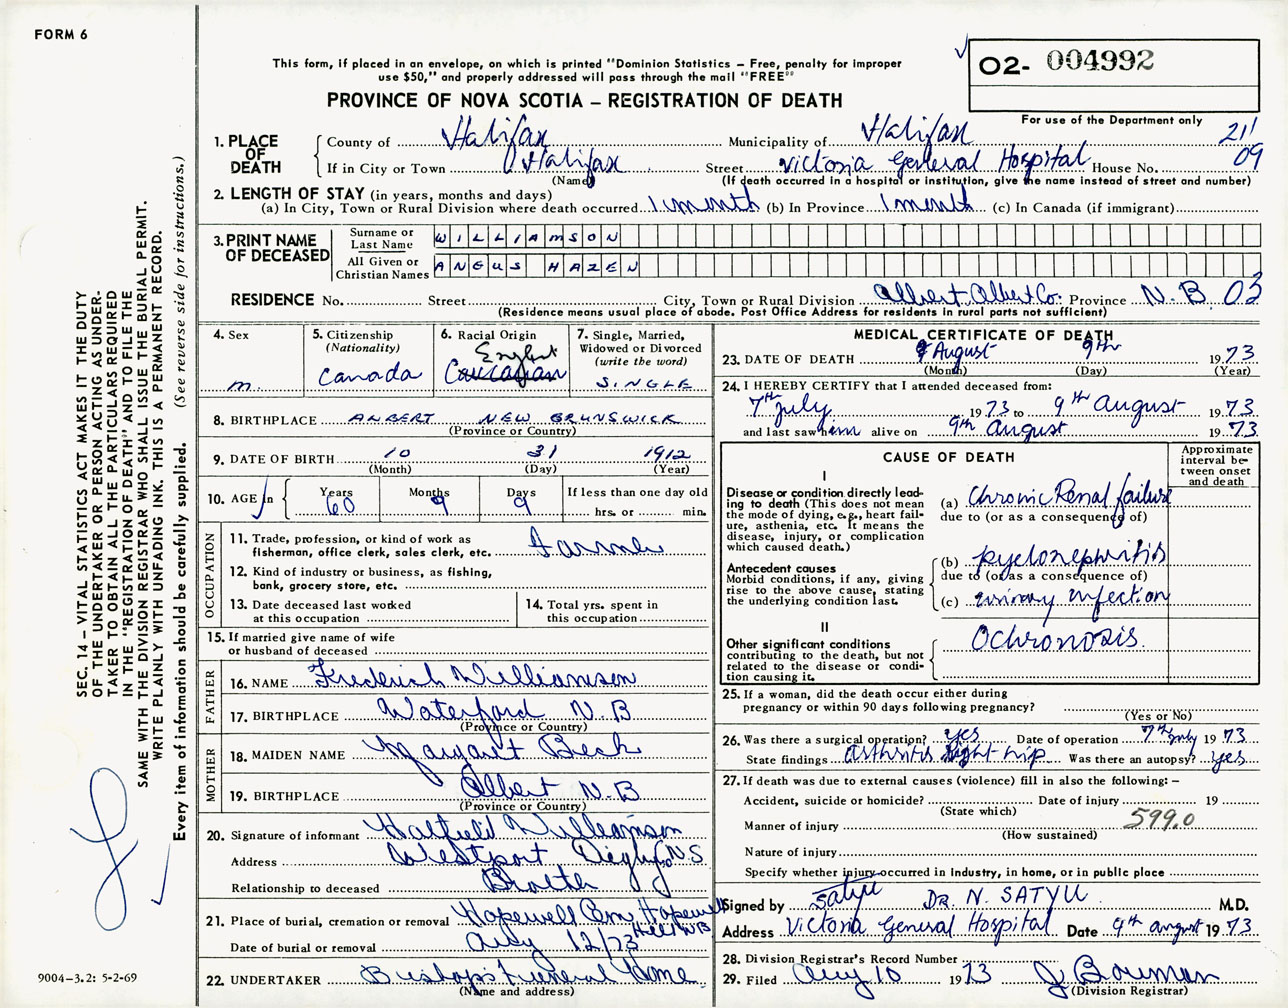 FORM 6
This form, if placed in an envelope, on which is printed "Dominion Statistics — Free, penalty for improper
use $50," and properly addressed will pass through the mail "FREE"
O2- 004992
PROVINCE OF NOVA SCOTIA — REGISTRATION OF DEATH
For use of the Department only
21
09
1. PLACE OF DEATH
County of Halifax Municipality of Halifax
If in City or Town Halifax Street Victoria General Hospital House No.
(Name) (If death occurred in a hospital or institution, give the name instead of street and number)
2. LENGTH OF STAY (in years, months and days)
(a) In City, Town or Rural Division where death occurred 1 month (b) In Province 1 month (c) In Canada (if immigrant)
3. PRINT NAME OF DECEASED
Surname or Last Name WILLIAMSON
All Given or Christian Names ANGUS HAZEN
RESIDENCE No. Street City, Town or Rural Division Albert, Albert Co. Province N.B 03
(Residence means usual place of abode. Post Office Address for residents in rural parts not sufficient)
4. Sex
m.
5. Citizenship
(Nationality)
Canada
6. Racial Origin
Caucasian
7. Single, Married,
Widowed or Divorced
(write the word)
SINGLE
8. BIRTHPLACE ALBERT NEW BRUNSWICK
(Province or Country)
9. DATE OF BIRTH 10 31 1912
(Month) (Day) (Year)
10. AGE in Years 60 Months 9 Days 9
If less than one day old
hrs. or min.
OCCUPATION
11. Trade, profession, or kind of work as
fisherman, office clerk, sales clerk, etc. Farmer
12. Kind of industry or business, as fishing,
bank, grocery store, etc.
13. Date deceased last worked
at this occupation
14. Total yrs. spent in
this occupation
15. If married give name of wife
or husband of deceased
FATHER
16. NAME Frederick Williamson
17. BIRTHPLACE Waterford N.B
(Province or Country)
MOTHER
18. MAIDEN NAME Margaret Beck
19. BIRTHPLACE Albert N.B
(Province or Country)
20. Signature of informant Hatfield Williamson
Address Westport, Digby Co N.S
Relationship to deceased Brother
21. Place of burial, cremation or removal Hopewell Cem, Hopewell
Hill N.B
Date of burial or removal Aug 12/73
22. UNDERTAKER Bishop's Funeral Home
(Name and address)
MEDICAL CERTIFICATE OF DEATH
23. DATE OF DEATH August 9th 1973
(Month) (Day) (Year)
24. I HEREBY CERTIFY that I attended deceased from:
7th July 1973 to 9th August 1973
and last saw him alive on 9th August 1973
CAUSE OF DEATH
Approximate
interval be-
tween onset
and death
I
Disease or condition directly lead-
ing to death (This does not mean
the mode of dying, e.g., heart fail-
ure, asthenia, etc. It means the
disease, injury, or complication
which caused death.)
(a) Chronic Renal failure
due to (or as a consequence of)
Antecedent causes
Morbid conditions, if any, giving
rise to the above cause, stating
the underlying condition last.
(b) pyelonephritis
due to (or as a consequence of)
(c) urinary infection
II
Other significant conditions
contributing to the death, but not
related to the disease or condi-
tion causing it.
Ochronosis.
25. If a woman, did the death occur either during
pregnancy or within 90 days following pregnancy?
(Yes or No)
26. Was there a surgical operation? yes Date of operation 7th July 1973
State findings Arthritis Right hip Was there an autopsy? yes
27. If death was due to external causes (violence) fill in also the following: —
Accident, suicide or homicide? Date of injury 19
(State which)
Manner of injury 599.0
(How sustained)
Nature of injury
Specify whether injury occurred in industry, in home, or in public place
Signed by Satyu DR. N. SATYU M.D.
Address Victoria General Hospital Date 9th August 1973
28. Division Registrar's Record Number
29. Filed Aug 10 1973 J Bowman
(Division Registrar)
SEC. 14 — VITAL STATISTICS ACT MAKES IT THE DUTY
OF THE UNDERTAKER OR PERSON ACTING AS UNDER-
TAKER TO OBTAIN ALL THE PARTICULARS REQUIRED
IN THE "REGISTRATION OF DEATH" AND TO FILE THE
SAME WITH THE DIVISION REGISTRAR WHO SHALL ISSUE THE BURIAL PERMIT.
WRITE PLAINLY WITH UNFADING INK. THIS IS A PERMANENT RECORD.
Every item of Information should be carefully supplied. (See reverse side for instructions.)
9004-3.2: 5-2-69